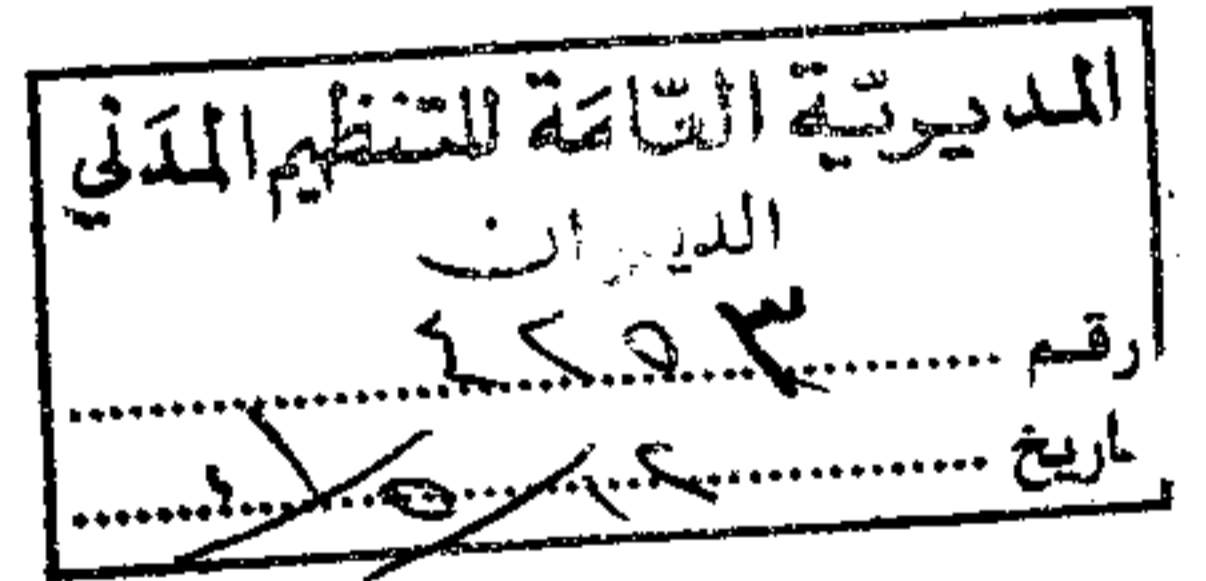 المديريّة العّامَة للتنظيم المدَني
الديوان
رقم ٤٢٥٣
تاريخ